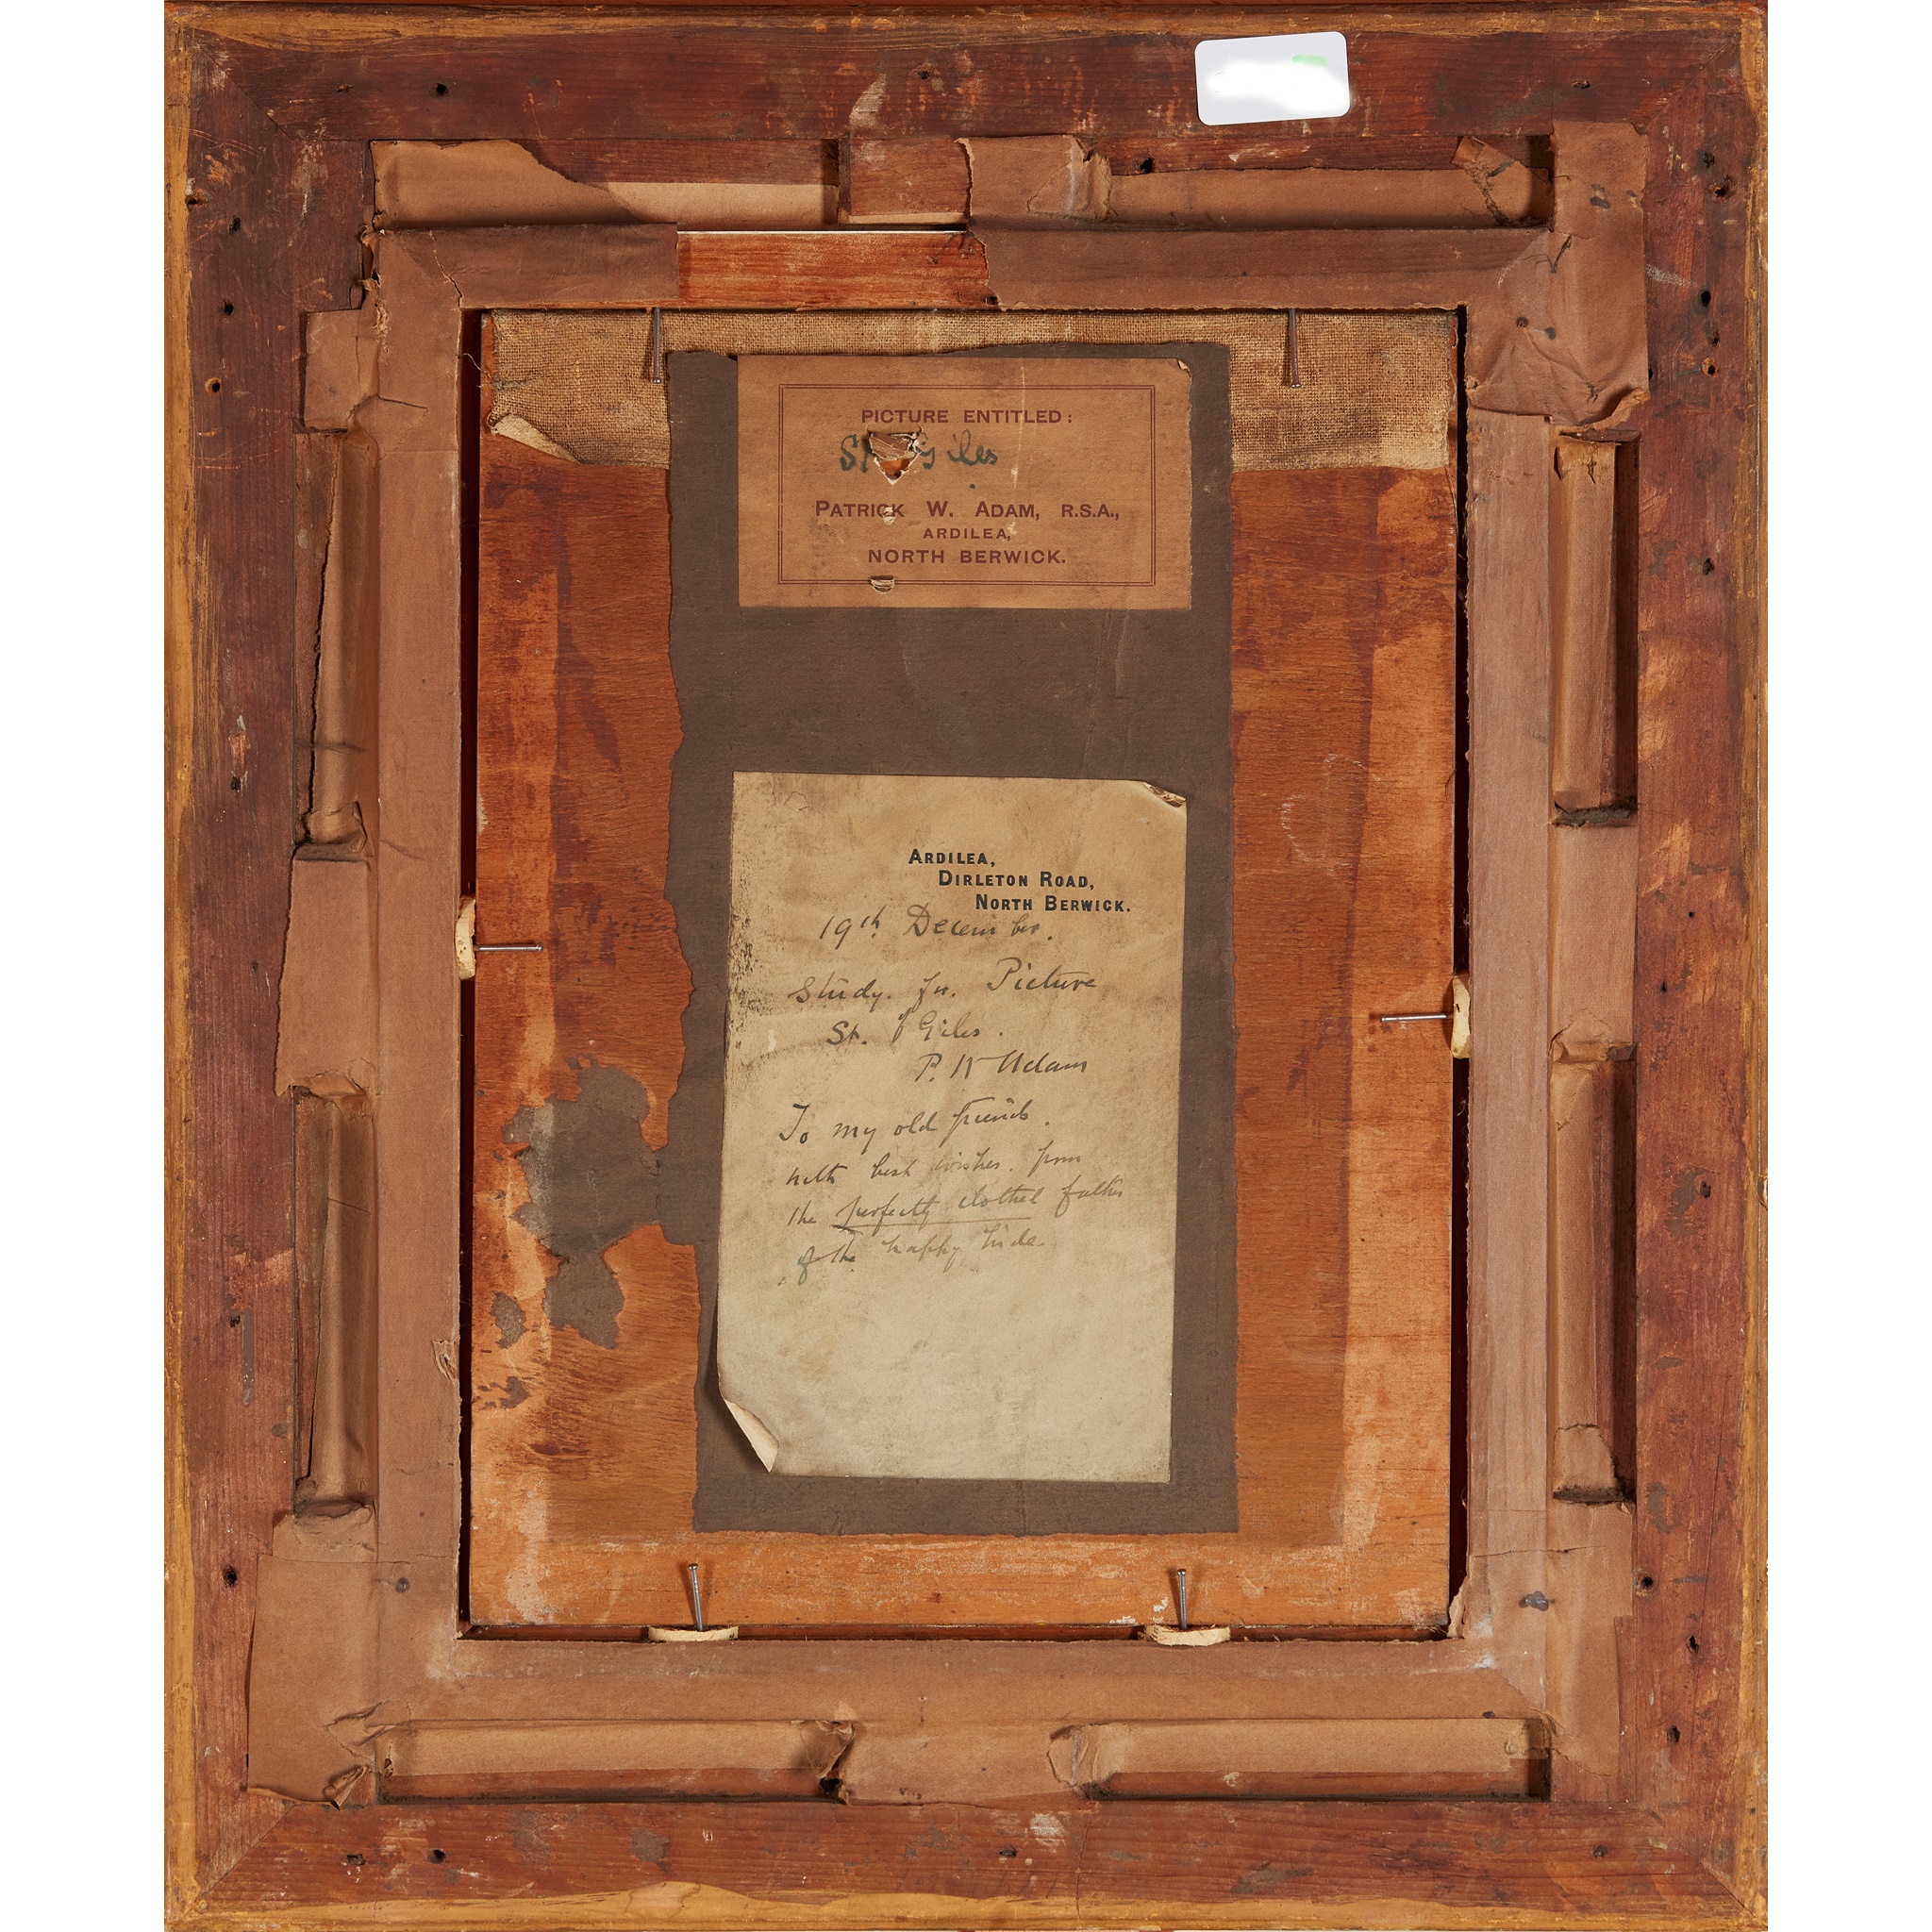 PICTURE ENTITLED:
St Giles
PATRICK W. ADAM, R.S.A.,
ARDILEA,
NORTH BERWICK.
ARDILEA,
DIRLETON ROAD,
NORTH BERWICK.
19th December.
Study. for. Picture
St. of Giles.
P. W Adam
To my old friends.
with best wishes. from
the perfectly clothed father
of the happy bride.